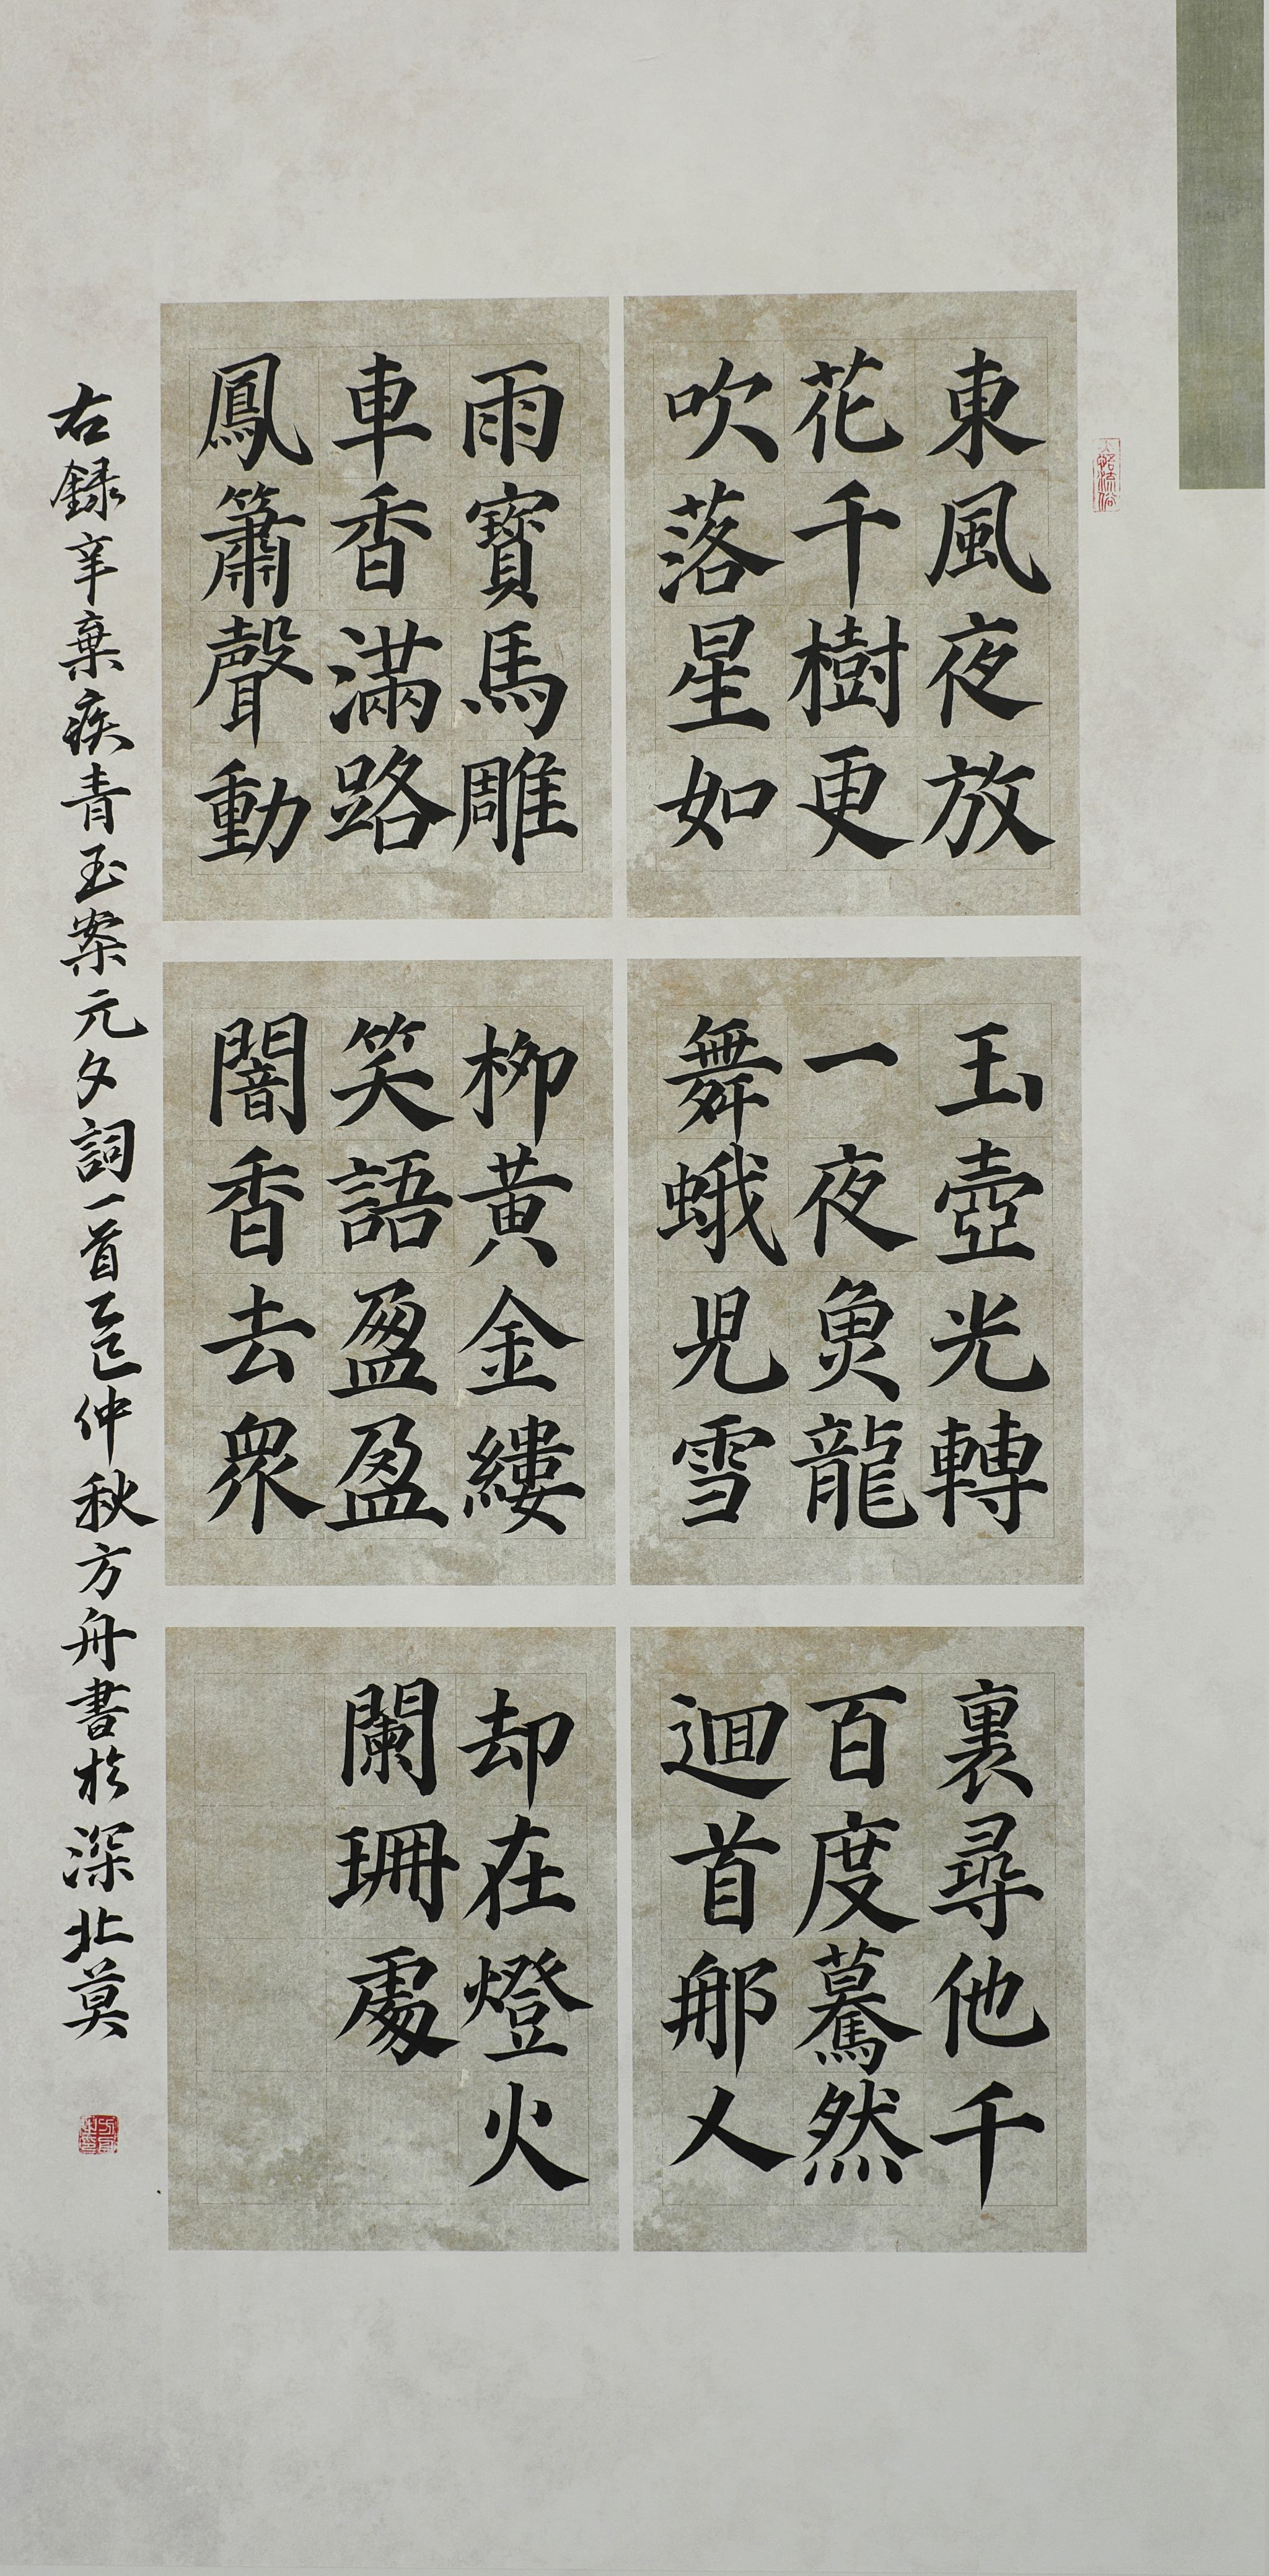 東風夜放
花千樹更
吹落星如
雨寶馬雕
車香滿路
鳳簫聲動
玉壺光轉
一夜魚龍
舞蛾兒雪
柳黃金縷
笑語盈盈
闇香去衆
裏尋他千
百度驀然
迴首那人
却在燈火
闌珊處
右録辛棄疾青玉案元夕詞一首乙巳仲秋方舟書於深北莫